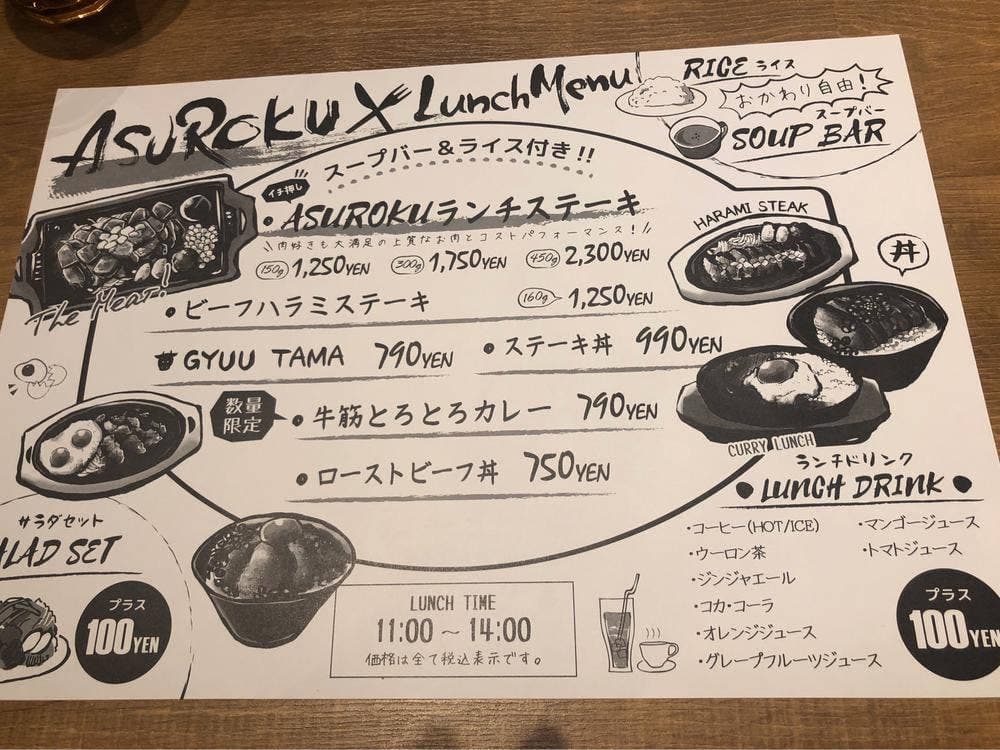 ASUROKU Lunch Menu
RICE ライス
おかわり自由!
スープバー
SOUP BAR
スープバー&ライス付き!!
イチ押し
・ASUROKUランチステーキ
\\肉好きも大満足の上質なお肉とコストパフォーマンス!//
150g 1,250YEN 300g 1,750YEN 450g 2,300YEN
The Meat!
HARAMI STEAK
丼
・ビーフハラミステーキ 160g 1,250YEN
GYUU TAMA 790YEN
・ステーキ丼 990YEN
数量
限定
・牛筋とろとろカレー 790YEN
・ローストビーフ丼 750YEN
CURRY LUNCH
サラダセット
LAD SET
プラス
100YEN
LUNCH TIME
11:00~14:00
価格は全て税込表示です。
ランチドリンク
●LUNCH DRINK●
・コーヒー(HOT/ICE)
・ウーロン茶
・ジンジャエール
・コカ・コーラ
・オレンジジュース
・グレープフルーツジュース
・マンゴージュース
・トマトジュース
プラス
100YEN